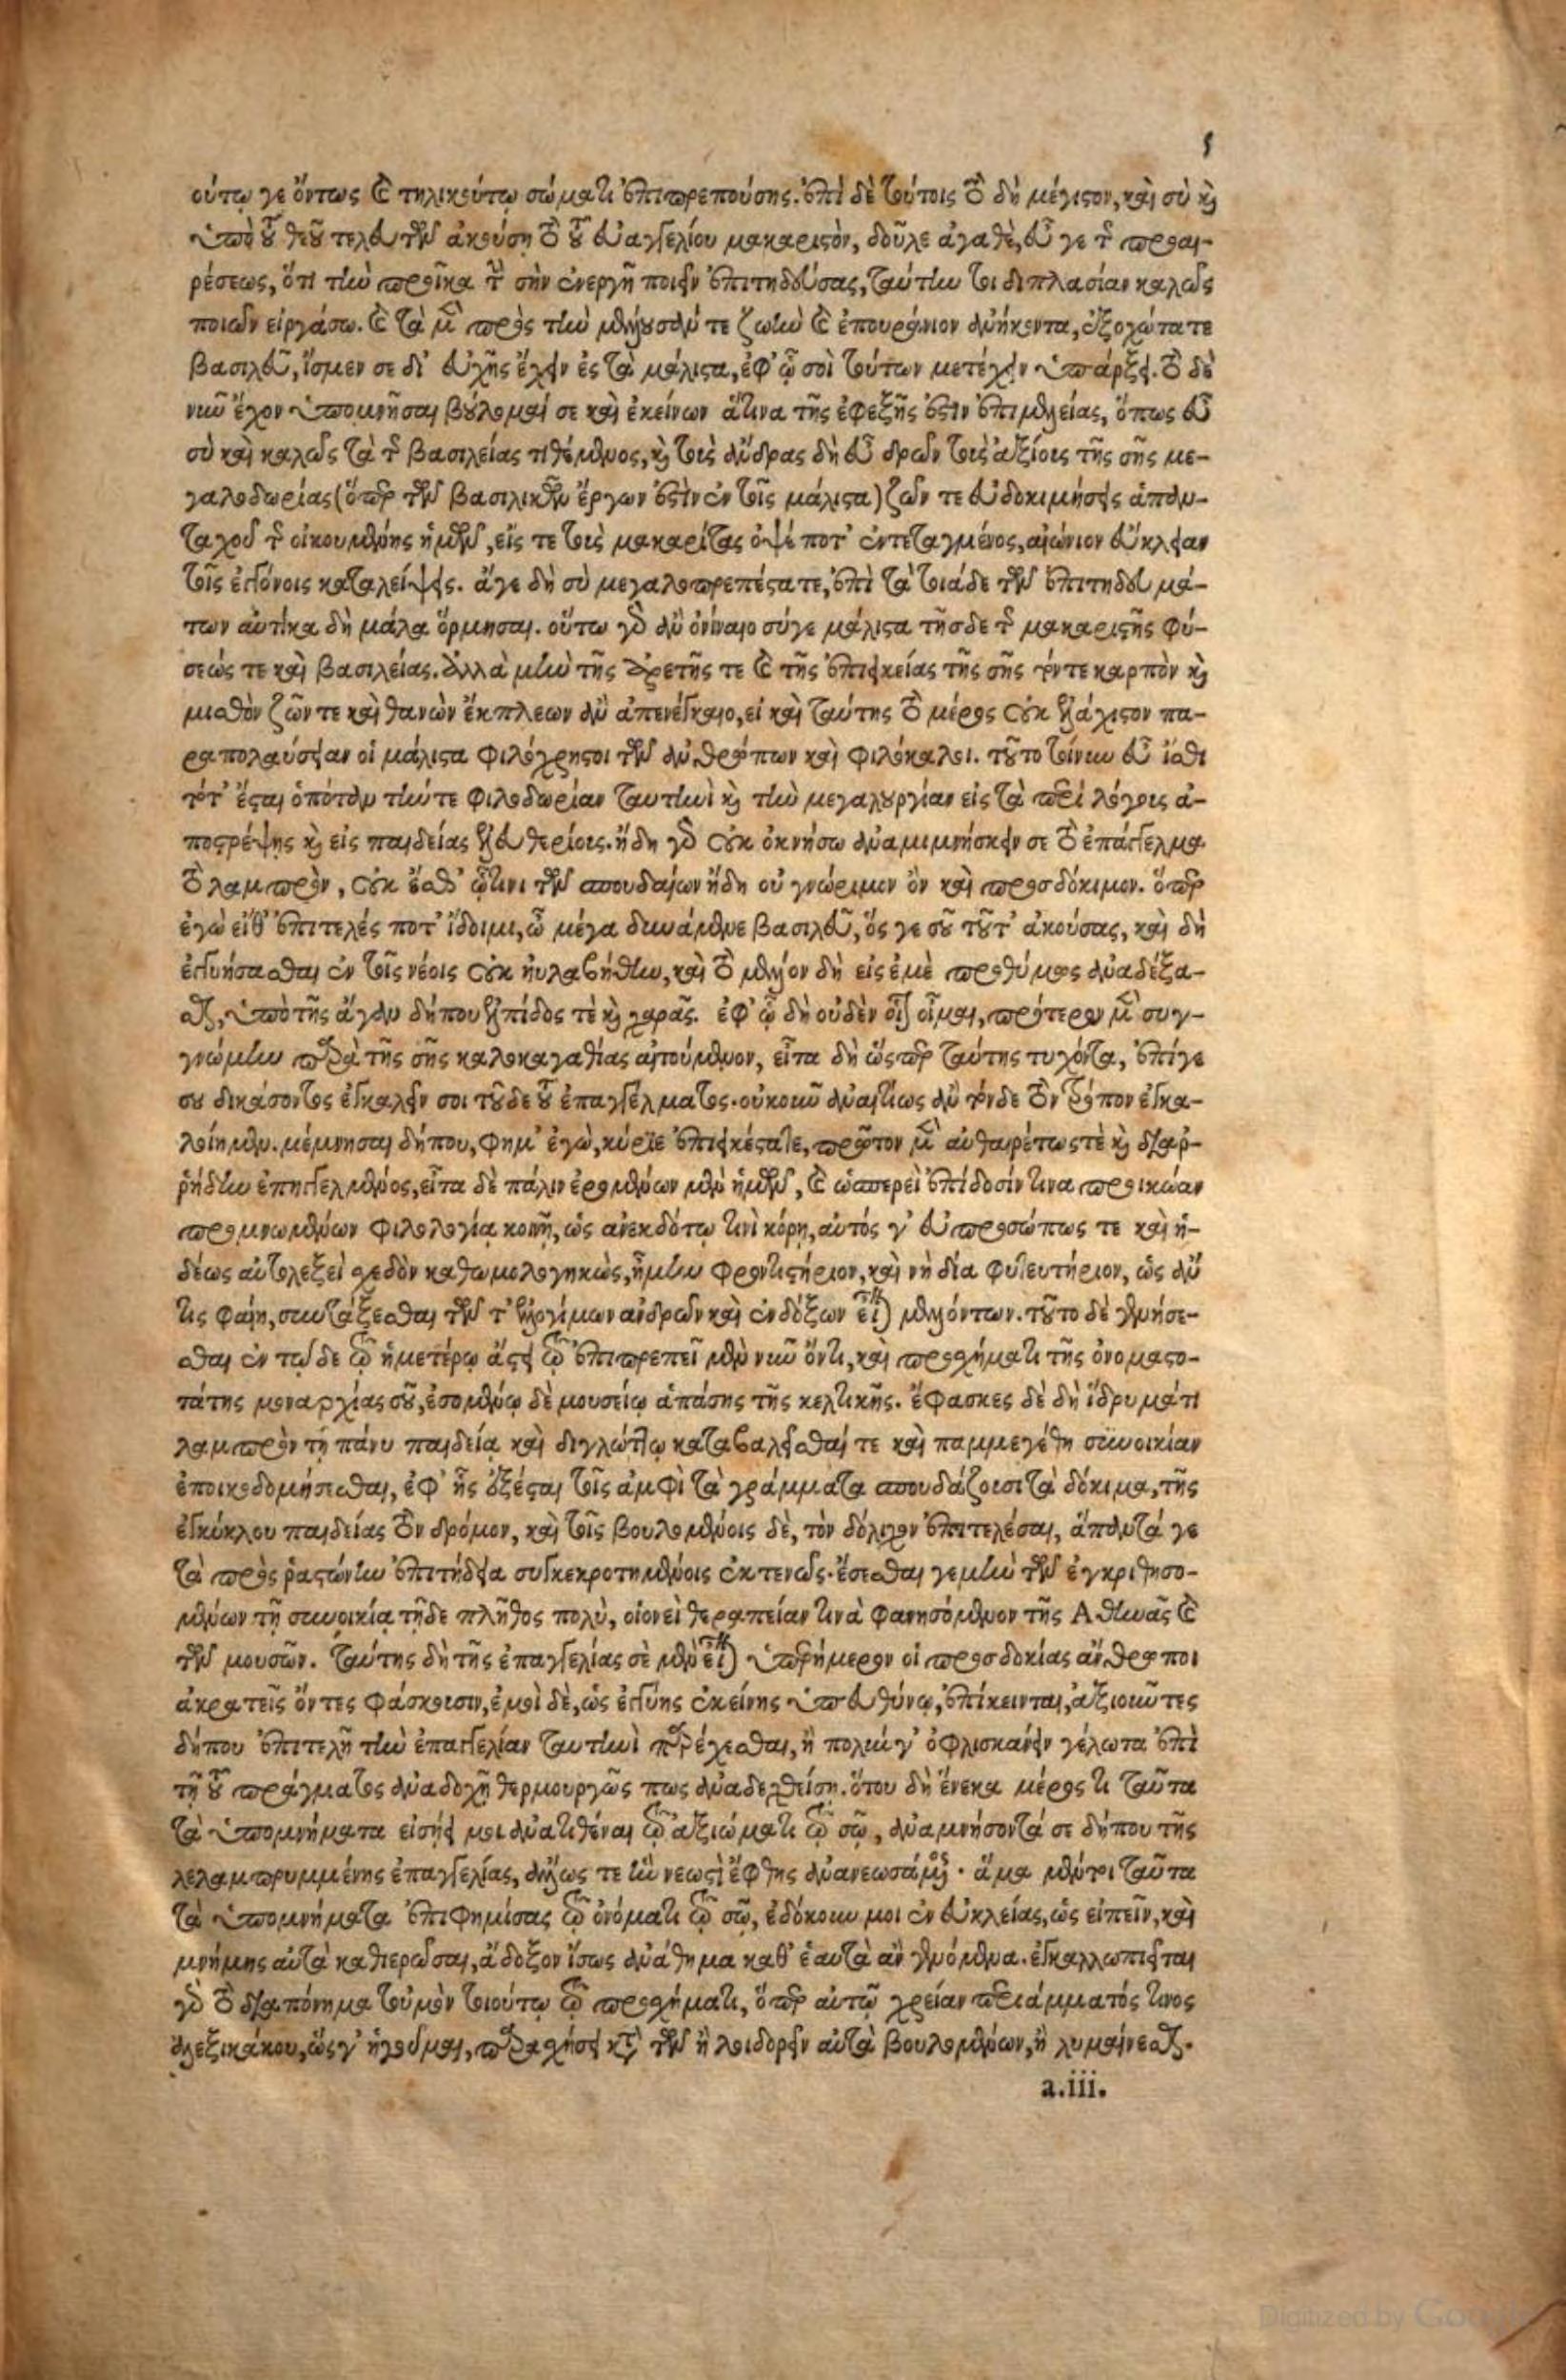 οὕτῳ γε ὄντως καὶ τηλικούτῳ σώματι ἐπιπρεπούσης. ἐπὶ δὲ τούτοις τὸ δὴ μέγιστον, καὶ σὺ καὶ
ὑπὸ τοῦ θεοῦ τελευτῶν ἀκούσῃ τὸ τοῦ εὐαγγελίου μακαριστὸν, δοῦλε ἀγαθὲ, εὖ γε τῆς προαι-
ρέσεως, ὅτι τὴν προῖκα τὴν σὴν ἐνεργῆ ποιεῖν ἐπιτηδεύσας, ταύτην τοι διπλασίαν καλῶς
ποιῶν εἰργάσω. καὶ τὰ μὲν πρὸς τὴν μέλλουσάν τε ζωὴν καὶ ἐπουράνιον ἀνήκοντα, ἐξοχώτατε
βασιλεῦ, ἴσμεν σε δι' εὐχῆς ἔχειν ἐς τὰ μάλιστα, ἐφ' ᾧ σοὶ τούτων μετέχειν ὑπάρξει. τὸ δὲ
νῦν ἔχον ὑπομνῆσαι βούλομαί σε καὶ ἐκείνων ἅτινα τῆς ἐφεξῆς ἐστὶν ἐπιμελείας, ὅπως εὖ
σὺ καὶ καλῶς τὰ τῆς βασιλείας τιθέμενος, καὶ τοὺς ἄνδρας δὴ εὖ δρῶν τοὺς ἀξίους τῆς σῆς με-
γαλοδωρίας (ὅπερ τῶν βασιλικῶν ἔργων ἐστὶν ἐν τοῖς μάλιστα) ζῶν τε εὐδοκιμήσῃς ἁπαν-
ταχοῦ τῆς οἰκουμένης ἡμῶν, εἴς τε τοὺς μακαρίτας ὀψέ ποτ' ἐντεταγμένος, αἰώνιον εὔκλειαν
τοῖς ἐκγόνοις καταλείψῃς. ἄγε δὴ σὺ μεγαλοπρεπέστατε, ἐπὶ τὰ τοιάδε τῶν ἐπιτηδευμά-
των αὐτίκα δὴ μάλα ὅρμησαι. οὕτω γὰρ ἂν ὀνίναιο σύγε μάλιστα τῆσδε τῆς μακαριστῆς φύ-
σεώς τε καὶ βασιλείας. ἀλλὰ μὴν τῆς ἀρετῆς τε καὶ τῆς ἐπιεικείας τῆς σῆς τόντε καρπὸν καὶ
μισθὸν ζῶν τε καὶ θανὼν ἔκπλεων ἂν ἀπενέγκαιο, εἰ καὶ ταύτης τὸ μέρος οὐκ ἐλάχιστον πα-
ραπολαύσειαν οἱ μάλιστα φιλόχρηστοι τῶν ἀνθρώπων καὶ φιλόκαλοι. τοῦτο τοίνυν εὖ ἴσθι
τότ' ἔσται ὁπόταν τήντε φιλοδωρίαν ταυτηνὶ καὶ τὴν μεγαλουργίαν εἰς τὰ περὶ λόγους ἀ-
ποστρέψῃς καὶ εἰς παιδείας ἐλευθερίους. ἤδη γὰρ οὐκ ὀκνήσω ἀναμιμνήσκειν σε τὸ ἐπάγγελμα
τὸ λαμπρὸν, οὐκ ἔσθ' ᾧτινι τῶν σπουδαίων ἤδη οὐ γνώριμον ὂν καὶ προσδόκιμον. ὅπερ
ἐγὼ εἴθ' ἐπιτελές ποτ' ἴδοιμι, ὦ μέγα δυνάμενε βασιλεῦ, ὅς γε σοῦ τοῦτ' ἀκούσας, καὶ δὴ
ἐγγυήσασθαι ἐν τοῖς νέοις οὐκ ηὐλαβήθην, καὶ τὸ μέλλον δὴ εἰς ἐμὲ προθύμως ἀναδέξα-
σθαι, ὑπὸ τῆς ἄγαν δήπου ἐλπίδος τὲ καὶ χαρᾶς. ἐφ' ᾧ δὴ οὐδὲν οἷον οἶμαι, πρότερον μὲν συγ-
γνώμην παρὰ τῆς σῆς καλοκαγαθίας αἰτούμενον, εἶτα δὴ ὥσπερ ταύτης τυχόντα, ἐπίγε
σου δικάσοντος ἐγκαλεῖν σοι τοῦδε τοῦ ἐπαγγέλματος. οὐκοῦν ἀναιτίως ἂν τόνδε τὸν τρόπον ἐγκα-
λοίημεν. μέμνησαι δήπου, φημ' ἐγὼ, κύριε ἐπιεικέστατε, πρῶτον μὲν αὐθαιρέτως τὲ καὶ διαρ-
ρήδην ἐπηγγελμένος, εἶτα δὲ πάλιν ἐρομένων μὲν ἡμῶν, καὶ ὡσπερεὶ ἐπίδοσίν τινα προικώαν
προμνωμένων φιλολογίᾳ κοινῇ, ὡς ἀνεκδότῳ τινὶ κόρῃ, αὐτός γ' εὐπροσώπως τε καὶ ἡ-
δέως αὐτολεξεὶ σχεδὸν καθωμολογηκὼς, ἦ μὴν φροντιστήριον, καὶ νὴ δία φυτευτήριον, ὡς ἄν
τις φαίη, συντάξεσθαι τῶν τ' ἐλλογίμων ἀνδρῶν καὶ ἐνδόξων εἶναι μελλόντων. τοῦτο δὲ γενήσε-
σθαι ἐν τῷδε τῷ ἡμετέρῳ ἄστει τῷ ἐπιπρεπεῖ μὲν νῦν ὄντι, καὶ προσχήματι τῆς ὀνομαστο-
τάτης μοναρχίας σοῦ, ἐσομένῳ δὲ μουσείῳ ἁπάσης τῆς κελτικῆς. ἔφασκες δὲ δὴ ἵδρυμά τι
λαμπρὸν τῇ πάνυ παιδείᾳ καὶ διγλώττῳ καταβαλεῖσθαί τε καὶ παμμεγέθη συνοικίαν
ἐποικοδομήσεσθαι, ἐφ' ἧς ἐξέσται τοῖς ἀμφὶ τὰ γράμματα σπουδάζουσι τὰ δόκιμα, τῆς
ἐγκύκλου παιδείας τὸν δρόμον, καὶ τοῖς βουλομένοις δὲ, τὸν δόλιχον ἐπιτελέσαι, ἅπαντά γε
τὰ πρὸς ῥαστώνην ἐπιτήδεια συγκεκροτημένοις ἐκτενῶς. ἔσεσθαι γεμὴν τῶν ἐγκριθησο-
μένων τῇ συνοικίᾳ τῇδε πλῆθος πολὺ, οἱονεὶ θεραπείαν τινὰ φανησόμενον τῆς Ἀθηνᾶς καὶ
τῶν μουσῶν. ταύτης δὴ τῆς ἐπαγγελίας σὲ μὲν εἶναι ὑπερήμερον οἱ προσδοκίας ἄνθρωποι
ἀκρατεῖς ὄντες φάσκουσιν, ἐμοὶ δὲ, ὡς ἐγγύης ἐκείνης ὑπευθύνῳ, ἐπίκεινται, ἀξιοῦντες
δήπου ἐπιτελῆ τὴν ἐπαγγελίαν ταυτηνὶ παρέχεσθαι, ἢ πολύν γ' ὀφλισκάνειν γέλωτα ἐπὶ
τῇ τοῦ πράγματος ἀναδοχῇ θερμουργῶς πως ἀναδεχθείσῃ. ὅτου δὴ ἕνεκα μέρος τι ταῦτα
τὰ ὑπομνήματα εἰσῄει μοι ἀνατιθέναι τῷ ἀξιώματι τῷ σῷ, ἀναμνήσοντά σε δήπου τῆς
λελαμπρυμμένης ἐπαγγελίας, ἄλλως τε ἣν νεωστὶ ἔφθης ἀνανεωσάμενος. ἅμα μέντοι ταῦτα
τὰ ὑπομνήματα ἐπιφημίσας τῷ ὀνόματι τῷ σῷ, ἐδόκουν μοι ἐν εὐκλείας, ὡς εἰπεῖν, καὶ
μνήμης αὐτὰ καθιερῶσαι, ἄδοξον ἴσως ἀνάθημα καθ' ἑαυτὰ ἂν γενόμενα. ἐγκαλλωπιεῖται
γὰρ τὸ διαπόνημα τοὐμὸν τοιούτῳ τῷ προσχήματι, ὅπερ αὐτῷ χρείαν περιάμματός τινος
ἀλεξικάκου, ὥς γ' ἡγοῦμαι, παρασχήσει κατὰ τῶν ἢ λοιδορεῖν αὐτὰ βουλομένων, ἢ λυμαίνεσθαι.
a.iii.
Digitized by Google